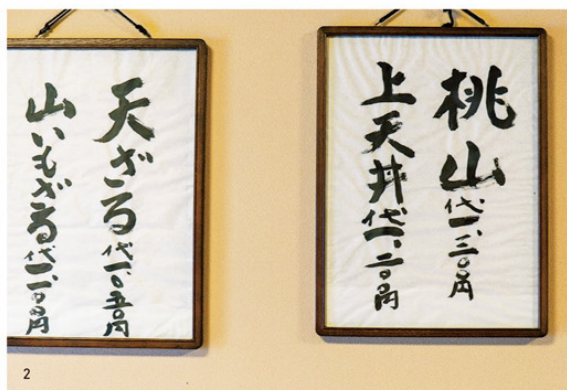 桃山代一、三〇円
上天丼代一、二〇円
天ざる代一、〇五〇円
山いもざる代一、一〇〇円
2